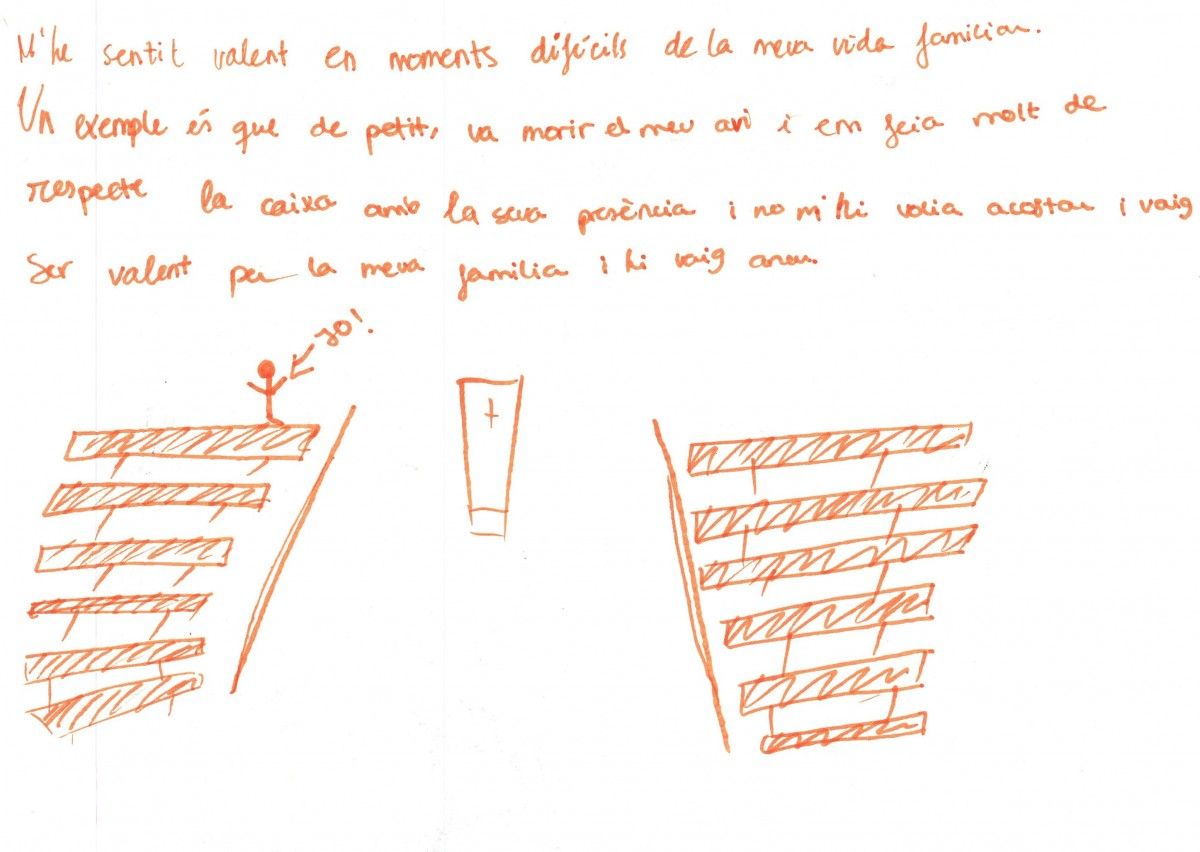 M'he sentit valent en moments difícils de la meva vida familiar.
Un exemple és que de petit, va morir el meu avi i em feia molt de
respecte la caixa amb la seva presència i no m'hi volia acostar i vaig
Ser valent per la meva familia i hi vaig anar.
JO!